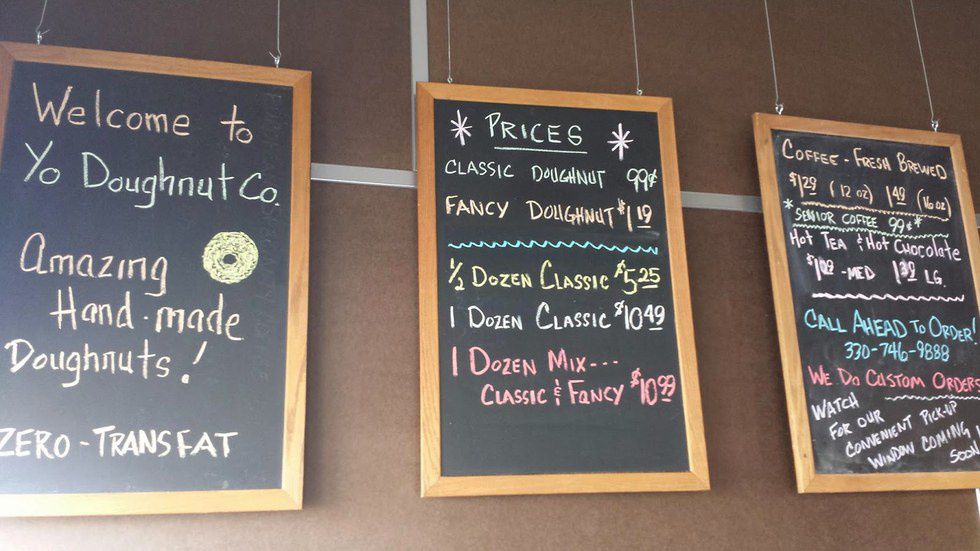 Welcome to
Yo Doughnut Co.
Amazing
Hand-made
Doughnuts!
ZERO-TRANSFAT
* PRICES *
CLASSIC DOUGHNUT 99¢
FANCY DOUGHNUT $1.19
1/2 DOZEN CLASSIC $5.25
1 DOZEN CLASSIC $10.49
1 DOZEN MIX---
CLASSIC & FANCY $10.99
COFFEE - FRESH BREWED
$1.29 (12 oz) 1.49 (16 oz)
*SENIOR COFFEE 99¢*
HOT TEA & HOT CHOCOLATE
-MED LG.
CALL AHEAD TO ORDER!
330-746-9888
WE DO CUSTOM ORDERS
WATCH
FOR OUR
CONVENIENT PICK-UP
WINDOW COMING
SOON